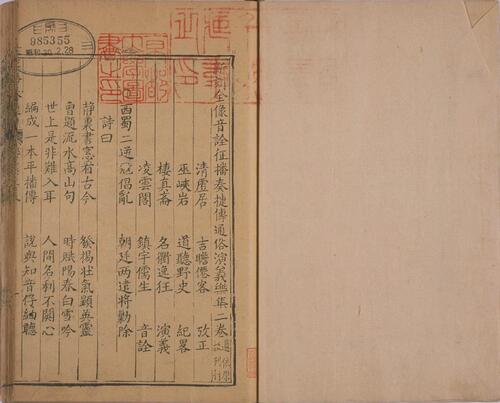 985355
2.28
新刻全像音詮征播奏捷傳通俗演義樂集二卷
清虛居 吉瞻僊客 攷正
巫峽岩 道聽野史 紀畧
棲真齋 名衢逸狂 演義
凌雲閣 鎮宇儒生 音詮
西蜀二逆寇倡亂 朝廷两遣將勦除
詩曰
靜裏書窓看古今 發揚壯氣顯英靈
曾題流水高山句 時賦陽春白雪吟
世上是非難入耳 人間名利不關心
編成一本平播傳 說與知音仔細聽